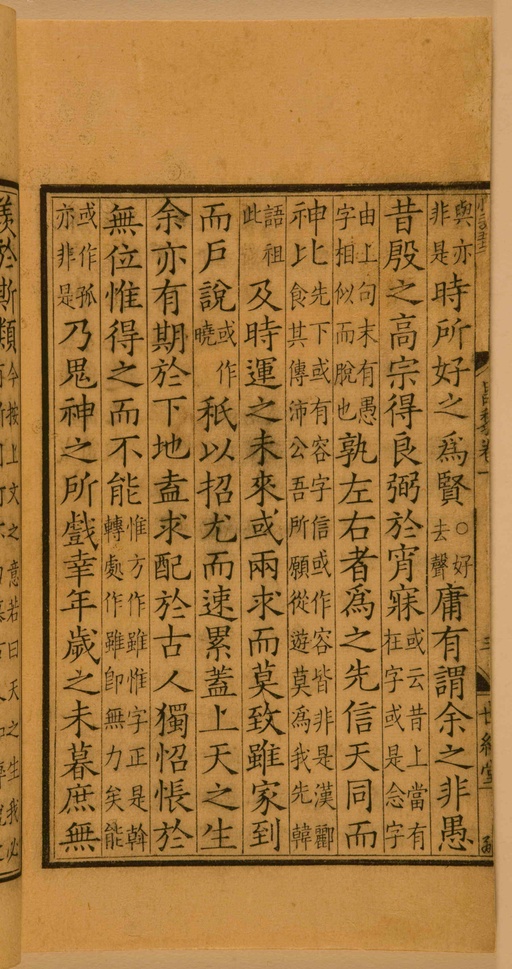 昌黎卷一 三 世綵堂
與亦非是時所好之爲賢○好去聲庸有謂余之非愚
昔殷之高宗得良弼於宵寐或云昔上當有枉字或是念字
由上句末有愚字相似而脫也孰左右者爲之先信天同而
神比先下或有容字信或作容皆非是漢酈食其傳沛公吾所願從遊莫爲我先韓
語祖此及時運之未來或兩求而莫致雖家到
而戶說或作曉祇以招尤而速累蓋上天之生
余亦有期於下地盍求配於古人獨怊悵於
無位惟得之而不能惟方作雖惟字正是斡轉處作雖卽無力矣能
或作孤亦非是乃鬼神之所戲幸年歲之未暮庶無
羨於斯類今按上文之意若曰天之生我必